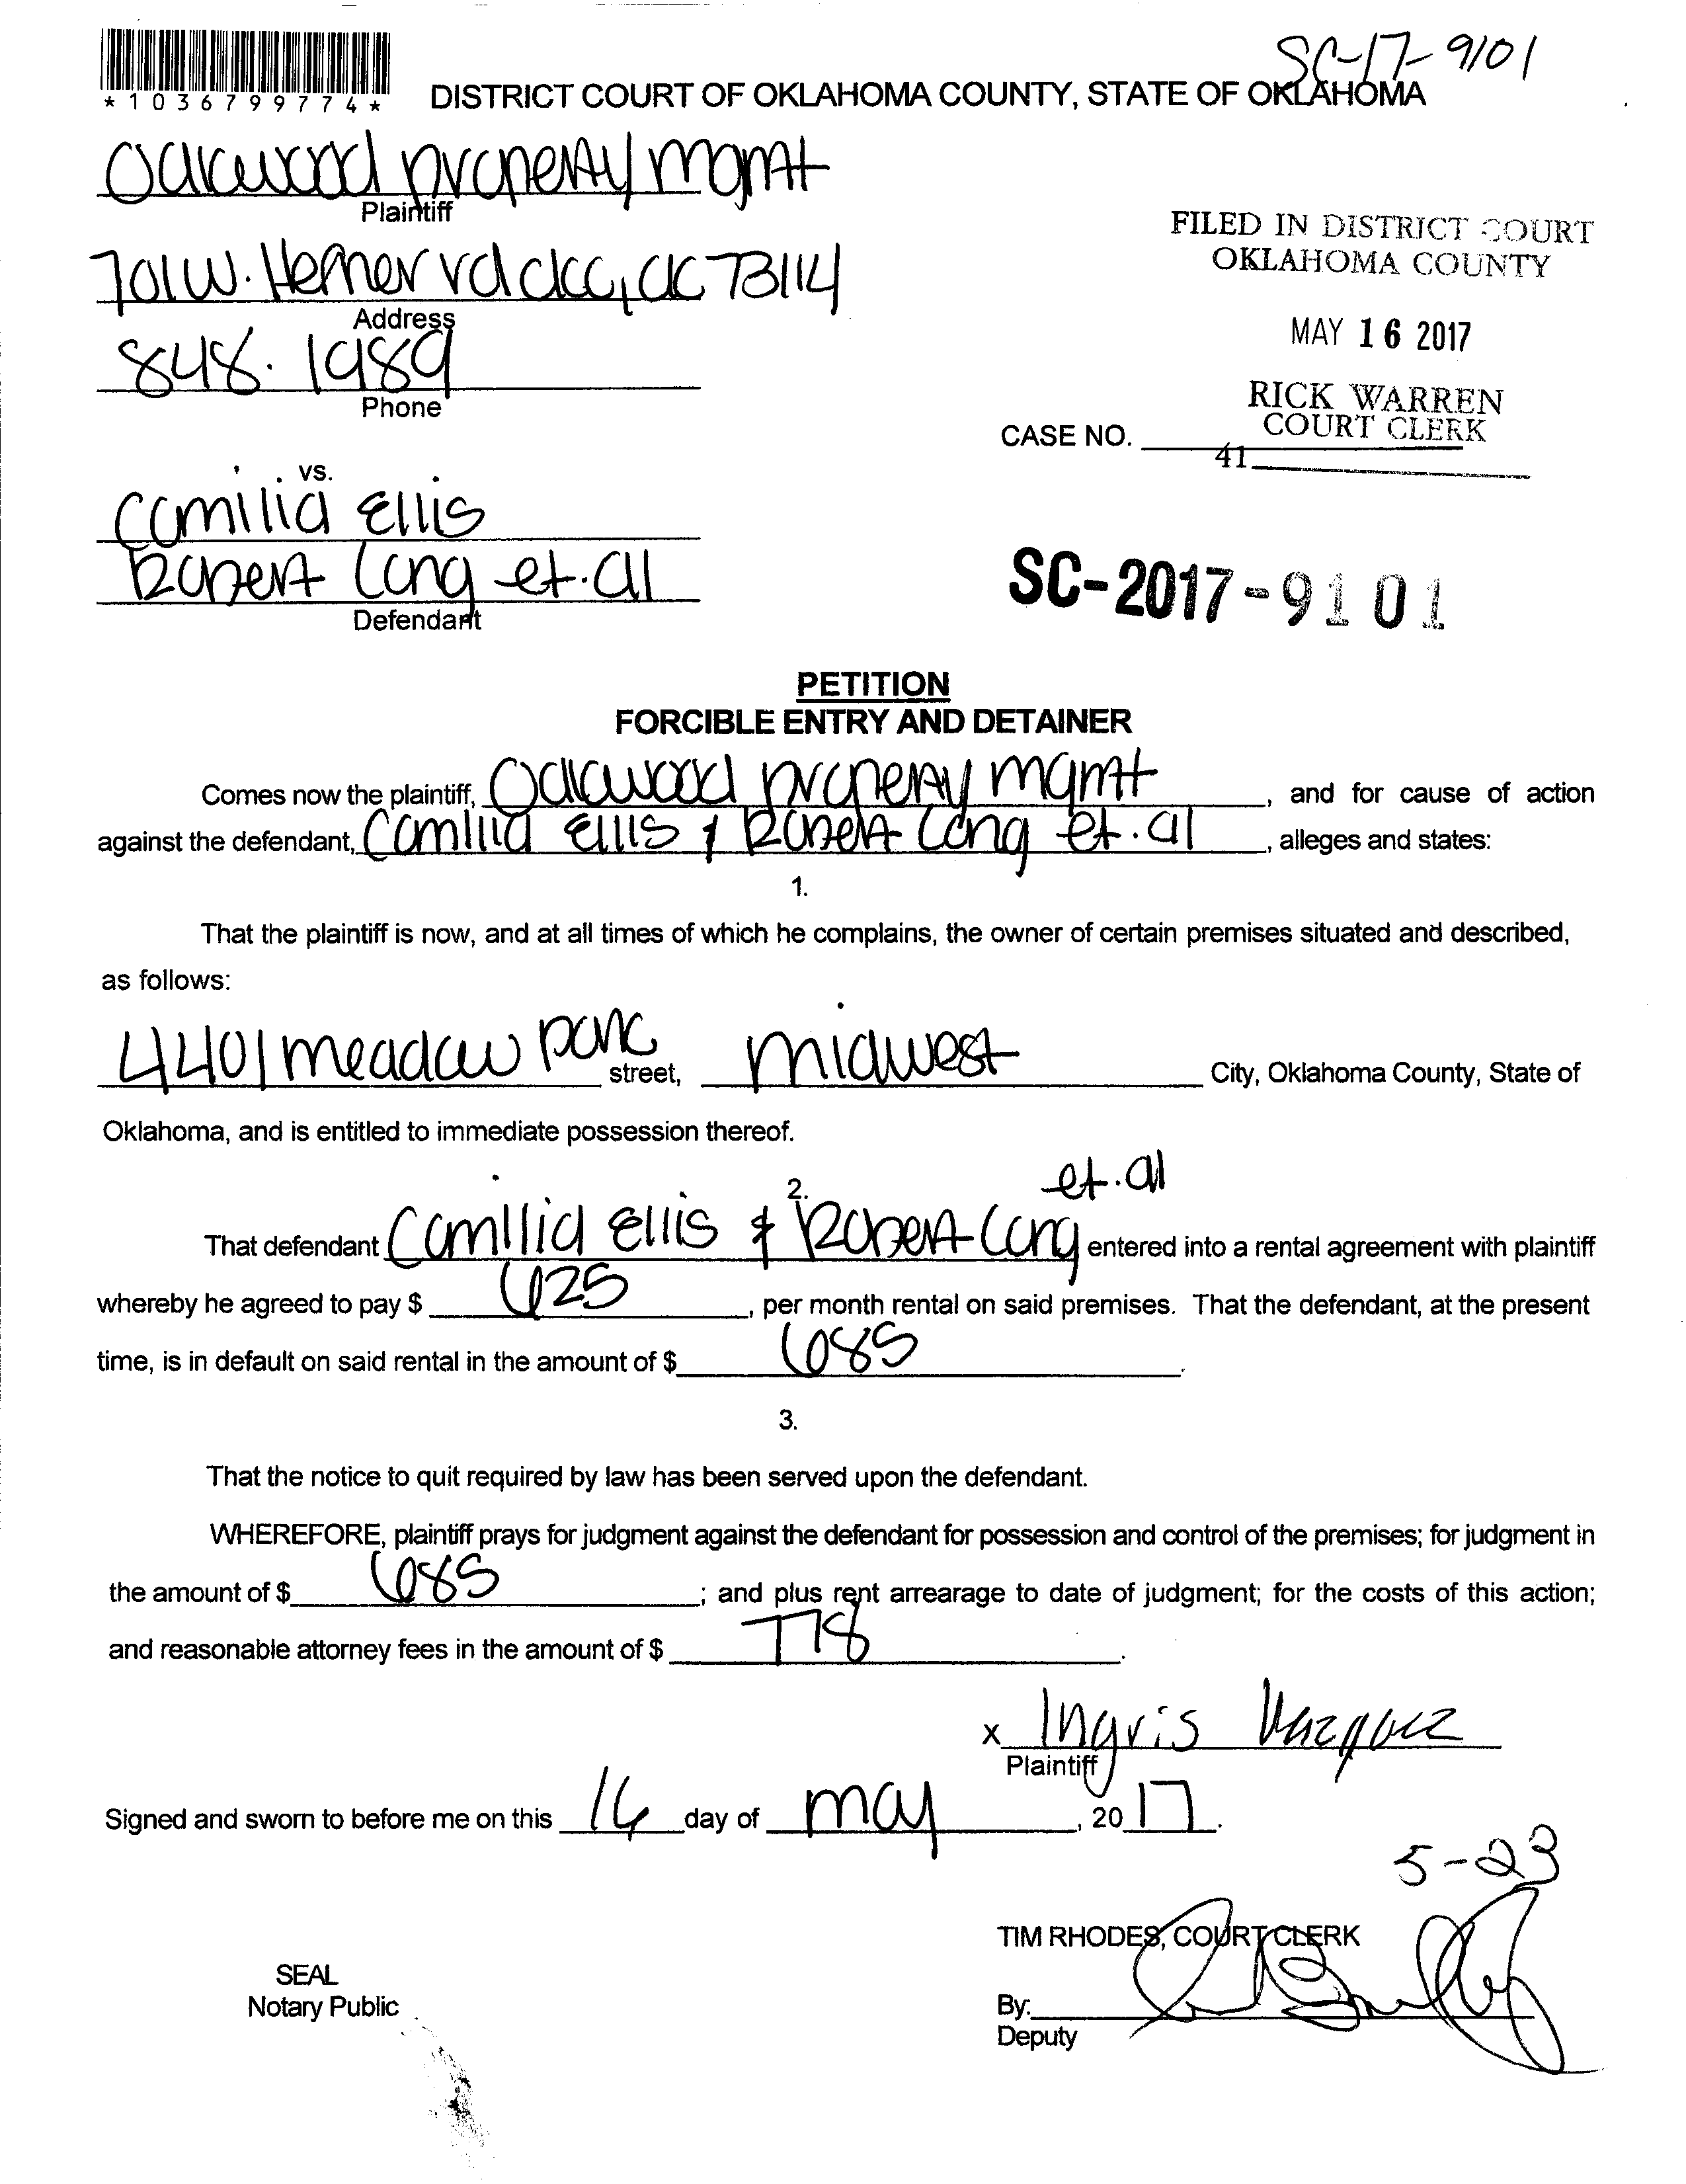 SC-17-9101
*1036799774*
DISTRICT COURT OF OKLAHOMA COUNTY, STATE OF OKLAHOMA
Oakwood property mgmt
Plaintiff
FILED IN DISTRICT COURT
OKLAHOMA COUNTY
701 W. Hefner rd okc, ok 73114
Address
MAY 16 2017
848.1989
Phone
RICK WARREN
COURT CLERK
CASE NO.
41
vs.
Camilia Ellis
Robert Long et.al
Defendant
SC-2017-9101
PETITION
FORCIBLE ENTRY AND DETAINER
Comes now the plaintiff, Oakwood property mgmt, and for cause of action
against the defendant, Camilia Ellis & Robert Long et.al, alleges and states:
1.
That the plaintiff is now, and at all times of which he complains, the owner of certain premises situated and described,
as follows:
4401 meadow park street, midwest City, Oklahoma County, State of
Oklahoma, and is entitled to immediate possession thereof.
et.al
2.
That defendant Camilia Ellis & Robert Long entered into a rental agreement with plaintiff
whereby he agreed to pay $ 625, per month rental on said premises. That the defendant, at the present
time, is in default on said rental in the amount of $ 685.
3.
That the notice to quit required by law has been served upon the defendant.
WHEREFORE, plaintiff prays for judgment against the defendant for possession and control of the premises; for judgment in
the amount of $ 685; and plus rent arrearage to date of judgment; for the costs of this action;
and reasonable attorney fees in the amount of $ 778.
x Ingris Vazquez
Plaintiff
Signed and sworn to before me on this 16 day of may, 2017.
5-23
TIM RHODES, COURT CLERK
SEAL
Notary Public
By:
Deputy